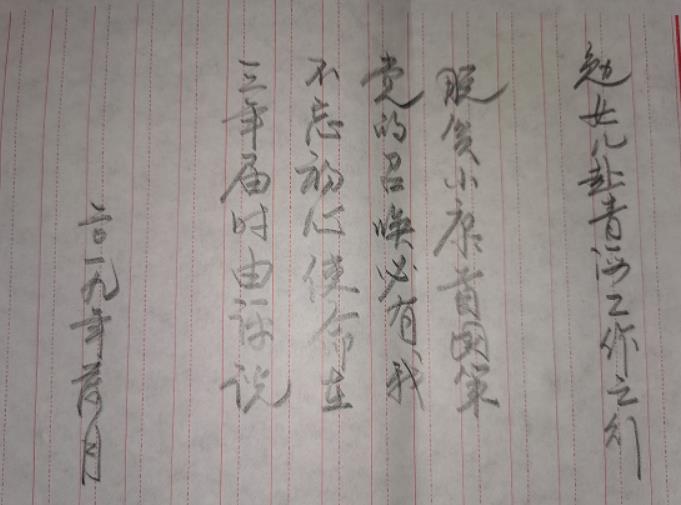 勉女儿赴青海工作之行
脱贫小康首国策
党的召唤必有我
不忘初心使命在
三年届时由评说
二〇一九年 月